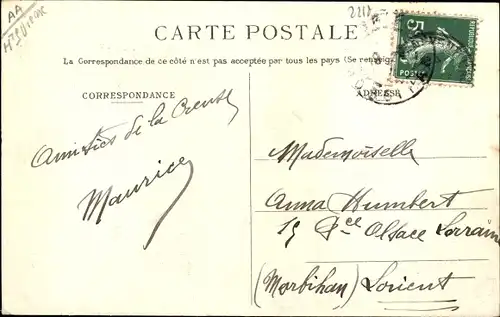 AA
2218
CARTE POSTALE
La Correspondance de ce côté n'est pas acceptée par tous les pays (Se renseig
CORRESPONDANCE
ADRESSE
5
POSTES
Amitiés de la Creuse
Maurice
Mademoiselle
Anna Humbert
15 Pce Alsace Lorraine
(Morbihan) Lorient